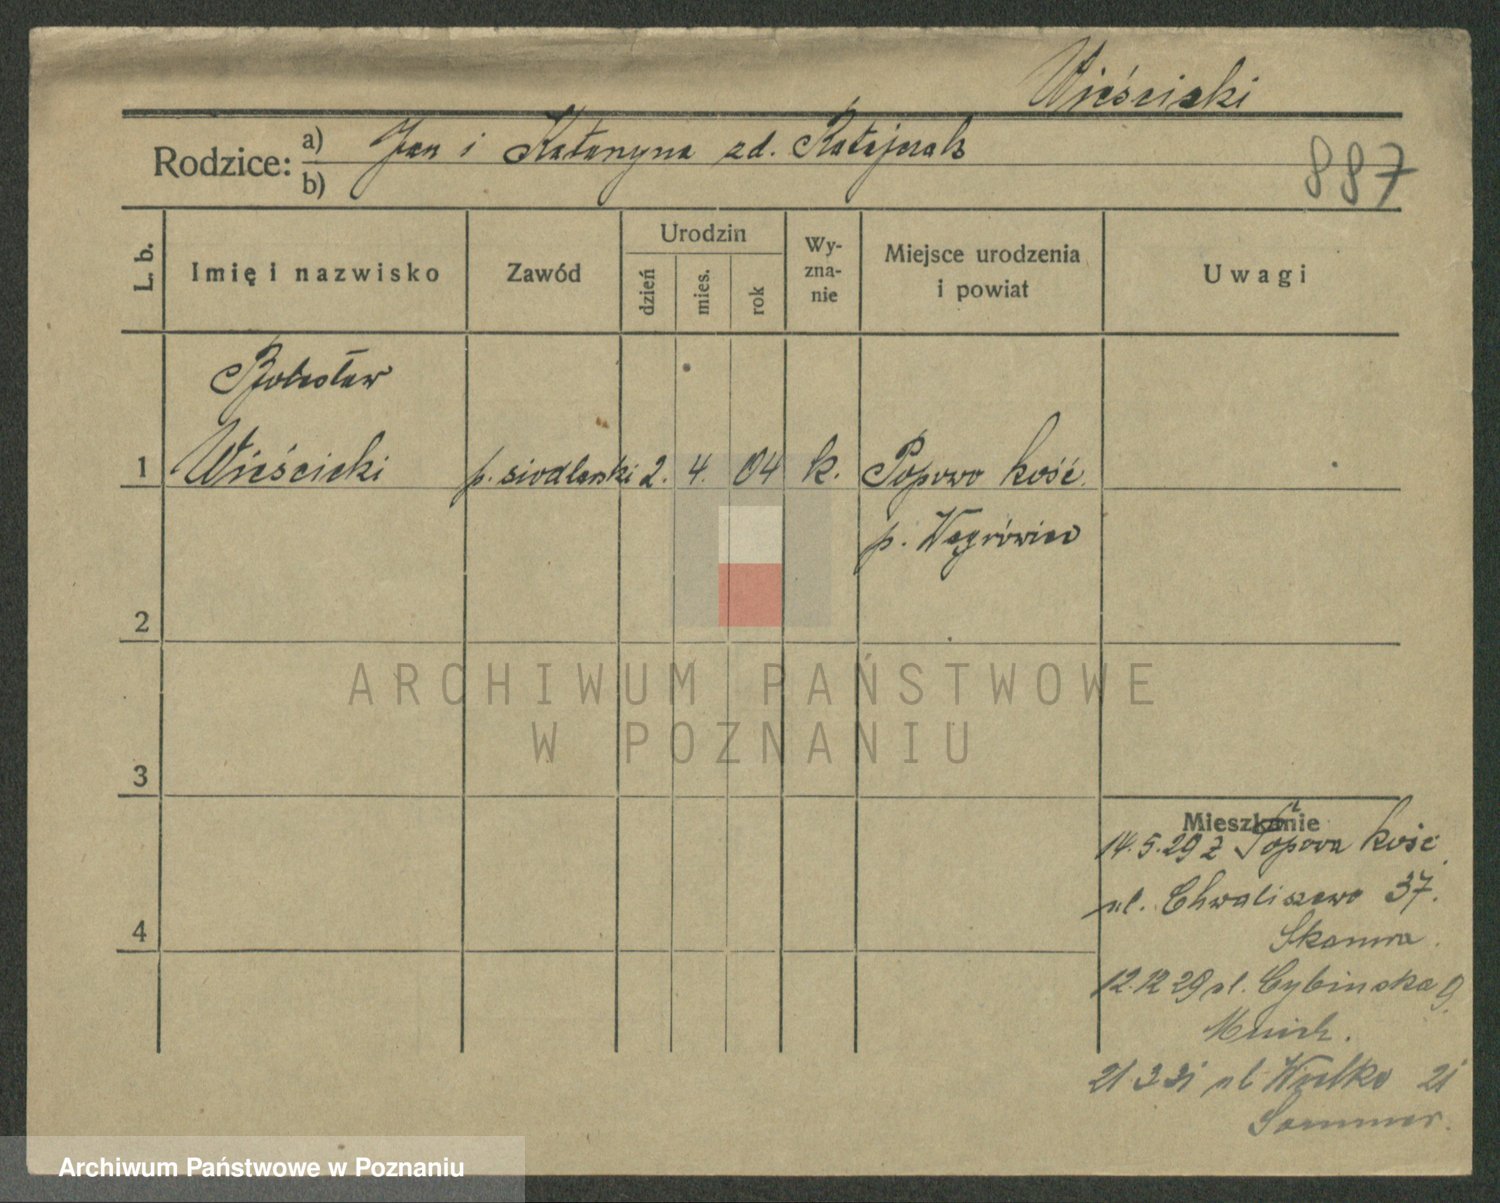 Wieścicki
Rodzice: a) Jan i Katarzyna zd. Ratajczak
b)
887
L. b.
Imię i nazwisko
Zawód
Urodzin
dzień
mies.
rok
Wy-
zna-
nie
Miejsce urodzenia
i powiat
Uwagi
Bolesław
1 Wieścicki p. siodlarski 2. 4. 04 k. Popowo kość.
p. Wągrówiec
2
ARCHIWUM PAŃSTWOWE
W POZNANIU
3
Mieszkanie
14.5.29 z Popowa kośc.
ul. Chwaliszewo 37.
4
12.12 29 ul. Cybinska 9.
21.3 31 ul Wielka 21
Sommer.
Archiwum Państwowe w Poznaniu